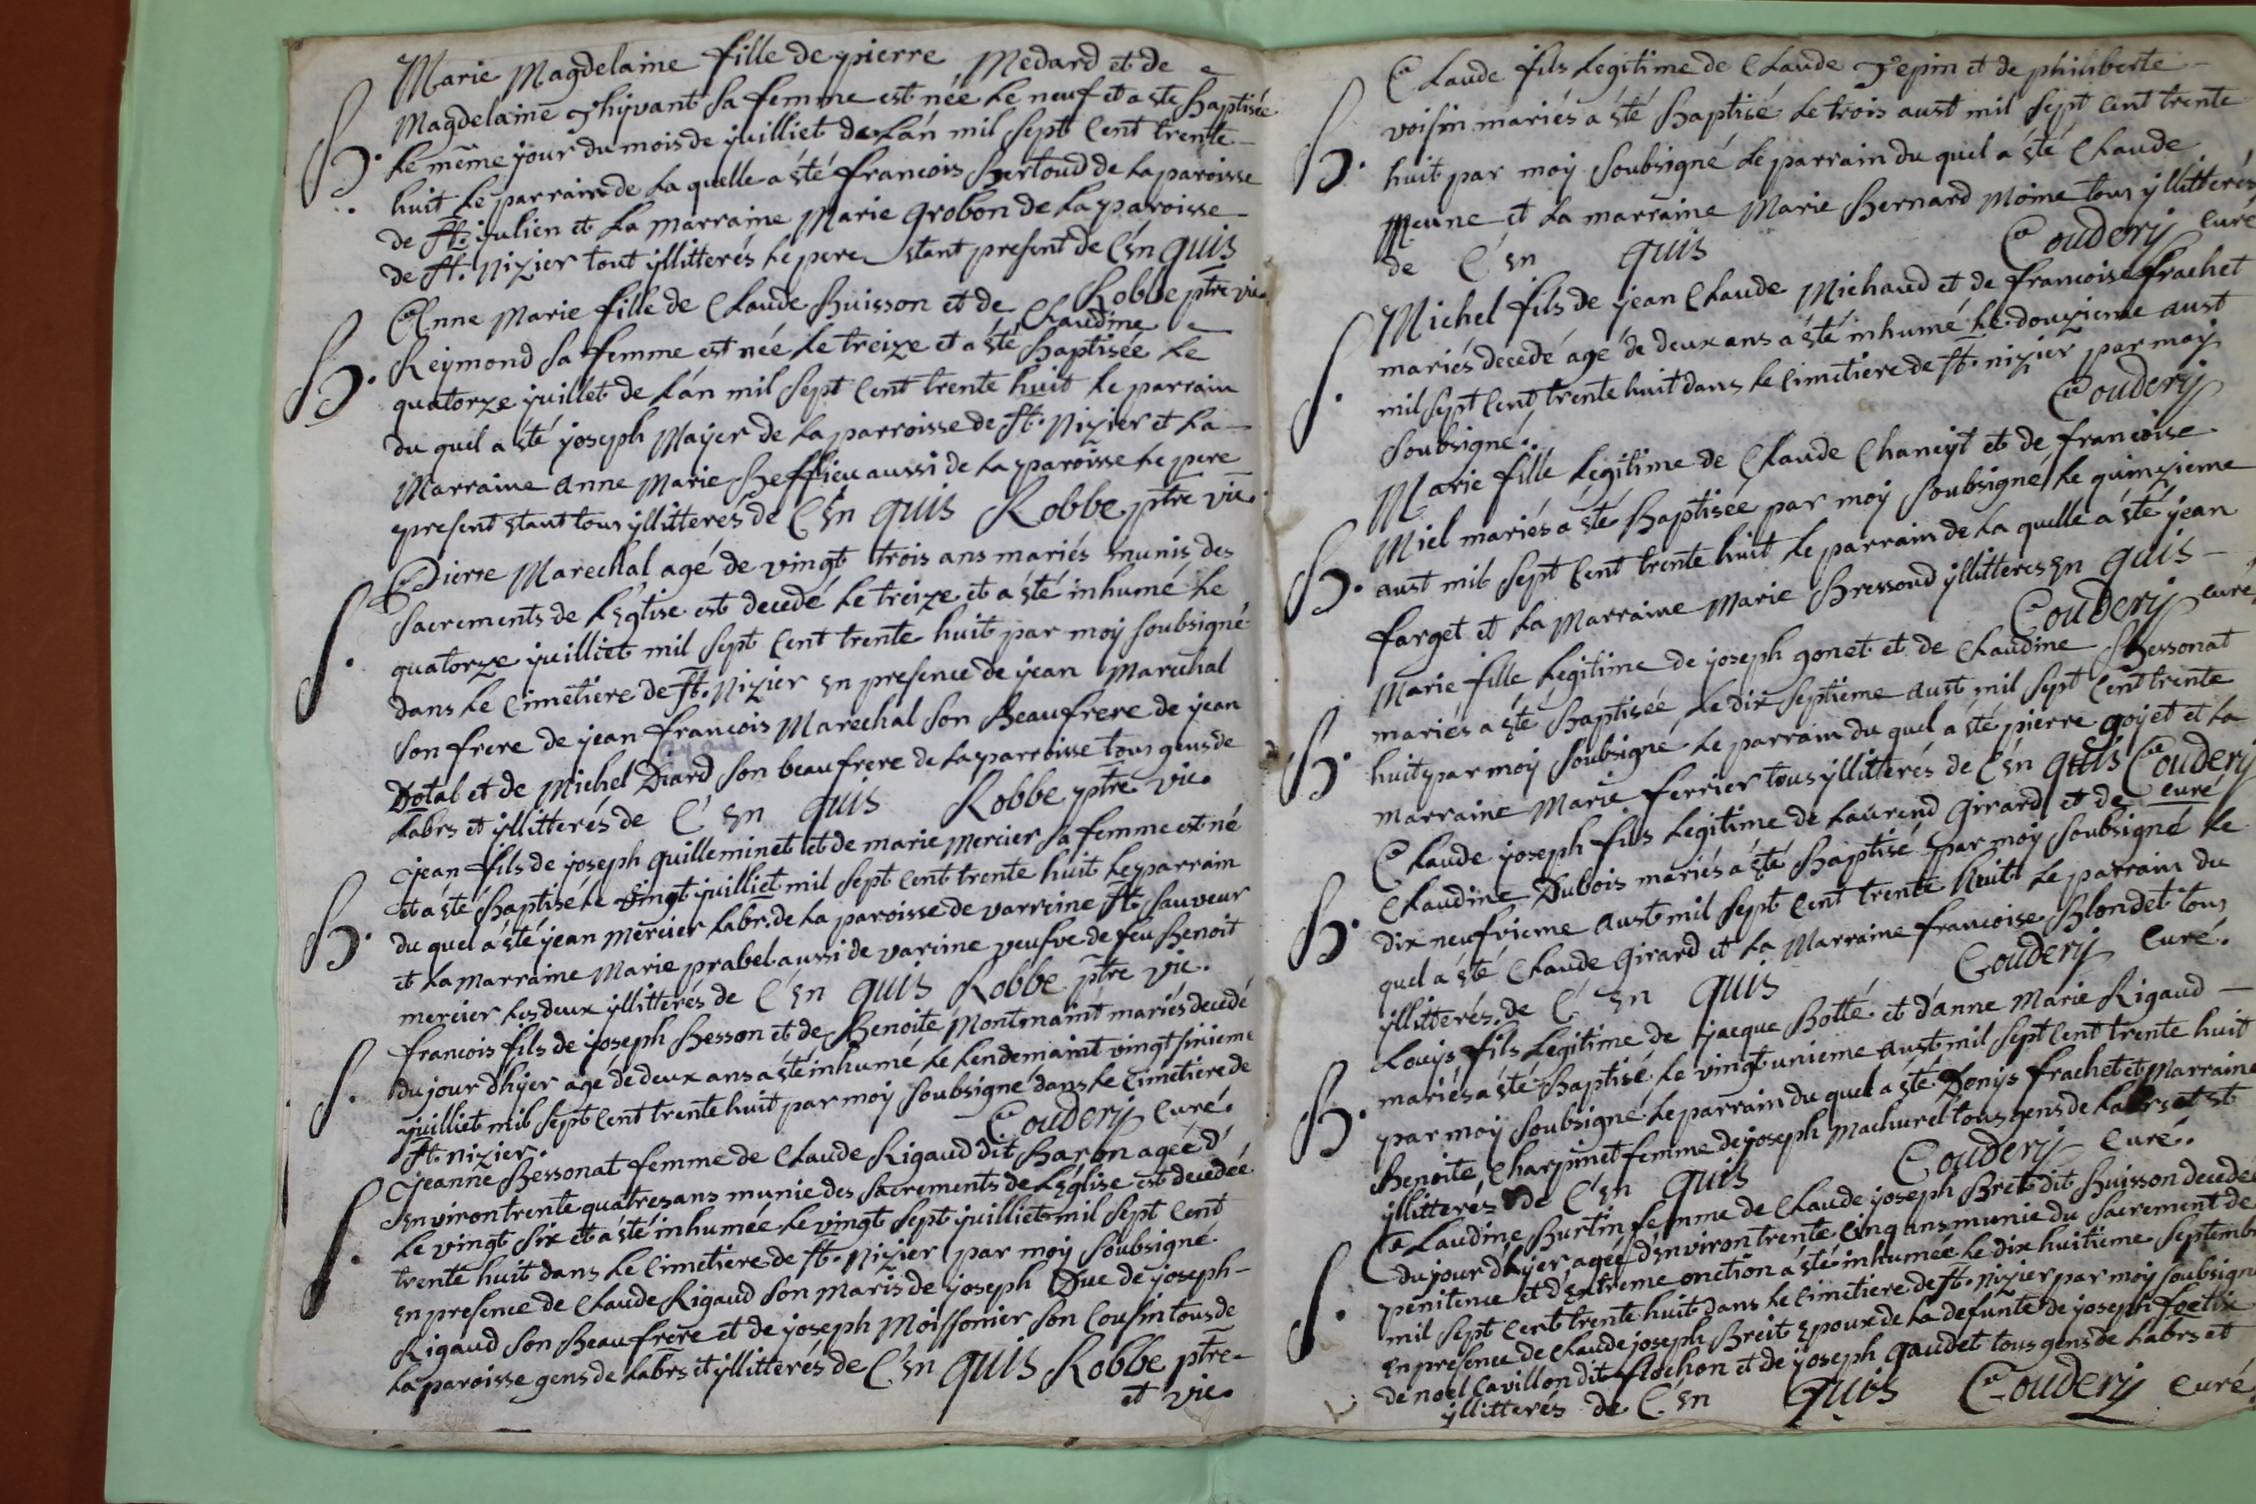 Marie Magdelaine fille de pierre Medard et de
B. Magdelaine Thyvant sa femme est née le neuf et a ste baptisée
le même jour du mois de juilliet de lán mil sept cent trente
huit le parrain de la quelle a sté francois Bertoud de la paroisse
de st. julien et la marraine Marie Grobon de la paroisse
de st. Nizier tout yllitterés le pere stant present de C sn quis
Robbe ptre vic.
Anne Marie fille de Claude Buisson et de Claudine
B. Reymond sa femme est née le treize et a sté baptisée le
quatorze juillet de lán mil sept cent trente huit le parrain
du quel a sté joseph Mayer de la parroisse de st. Nizier et la
Marraine anne Marie Beffieu aussi de la paroisse le pere
present stant tous yllitterés de C sn quis Robbe ptre vic.
Pierre Marechal agé de vingt trois ans mariés munis des
S. sacrements de lEglise est decedé le treize et a sté inhumé le
quatorze juilliet mil sept cent trente huit par moy soubsigné
dans le cimetiere de st. Nizier sn presence de jean Marechal
son frere de jean francois Marechal son Beaufrere de jean
Dotal et de Michel Diard son beaufrere de la parroisse tous gens de
labrs et yllitterés de C sn quis Robbe ptre vic.
jean fils de joseph Guilleminet et de marie Mercier sa femme est né
et a sté baptisé le vingt juilliet mil sept cent trente huit le parrain
B. du quel a sté jean mercier labr. de la paroisse de varreine st sauveur
et la marraine Marie prabel aussi de vareine veufve de feu Benoit
mercier les deux yllitterés de C sn quis Robbe ptre vic.
francois fils de joseph Besson et de Benoite Montmaint mariés decedé
S. du jour dhyer age de deux ans a sté inhumé le lendemaint vingt sixieme
juilliet mil sept cent trente huit par moy soubsigné dans le cimetiere de
st. nizier. Couderij curé.
jeanne Bessonat femme de Claude Rigaud dit Baron ageé d'
S. snviron trente quatres ans munie des sacrements de lEglise est decedeé
le vingt six et a sté inhumée le vingt sept juilliet mil sept cent
trente huit dans le cimetiere de st. Nizier par moy soubsigné
sn presence de Claude Rigaud son maris de joseph Duc de joseph
Rigaud son Beaufrere et de joseph Moissonier son Cousin tous de
la paroisse gens de labrs et yllitterés de C sn quis Robbe ptre
et vic.
Claude fils legitime de Claude Tepin et de philiberte
B. voisin mariés a sté baptisé le trois aust mil sept cent trente
huit par moy soubsigné le parrain du quel a sté Claude
Meune et la marraine Marie Bernard Moine tous yllitterés
de C sn quis Couderij curé
Michel fils de jean Claude Michaud et de francoise frachet
S. mariés decedé agé de deux ans a sté inhumé le douzieme aust
mil sept cent trente huit dans le cimetiere de st. nizier par moy
soubsigné. Couderij
Marie fille legitime de Claude Chaneyt et de francoise
Miel mariés a sté baptisée par moy soubsigné le quinzieme
B. aust mil sept cent trente huit le parrain de la quelle a sté jean
farget et la Marraine Marie Bressoud yllitteres sn quis
Couderij curé
Marie fille legitime de joseph gonet et de Claudine Bessonat
mariés a sté baptisée le dix septieme aust mil sept cent trente
B. huit par moy soubsigné le parrain du quel a sté pierre goyet et la
marraine Marie ferrier tous yllitterés de C sn quis Couderij
curé
Claude joseph fils legitime de Laurend Girard et de
Claudine Dubois mariés a sté baptisé par moy soubsigné le
B. dix neufvieme aust mil sept cent trente huit le parrain du
quel a sté Claude Girard et la Marraine francoise Blondet tous
yllitterés de C sn quis Couderij curé.
Louys fils legitime de jacque Botté et d'anne Marie Rigaud
B. mariés a sté baptisé le vingt unieme aust mil sept cent trente huit
par moy soubsigné le parrain du quel a sté Denys frachet et Marraine
Benoite Charpinet femme de joseph Machurel tous gens de labrs et st
yllitterés de C sn quis Couderij curé.
Claudine Burtin femme de Claude joseph Bret dit Buisson decedeé
du jour dhyer ageé d'Environ trente cinq ans munie du sacrement de
S. penitence et dExtreme onction a sté inhumée le dix huitieme septembre
mil sept cent trente huit dans le cimetiere de st. nizier par moy soubsigné
En presence de Claude joseph Breit Epoux de la defunte de joseph foetix
de noel Cavillon dit flochon et de joseph Gaudet tous gens de labrs et
yllitterés de C sn quis Couderij curé